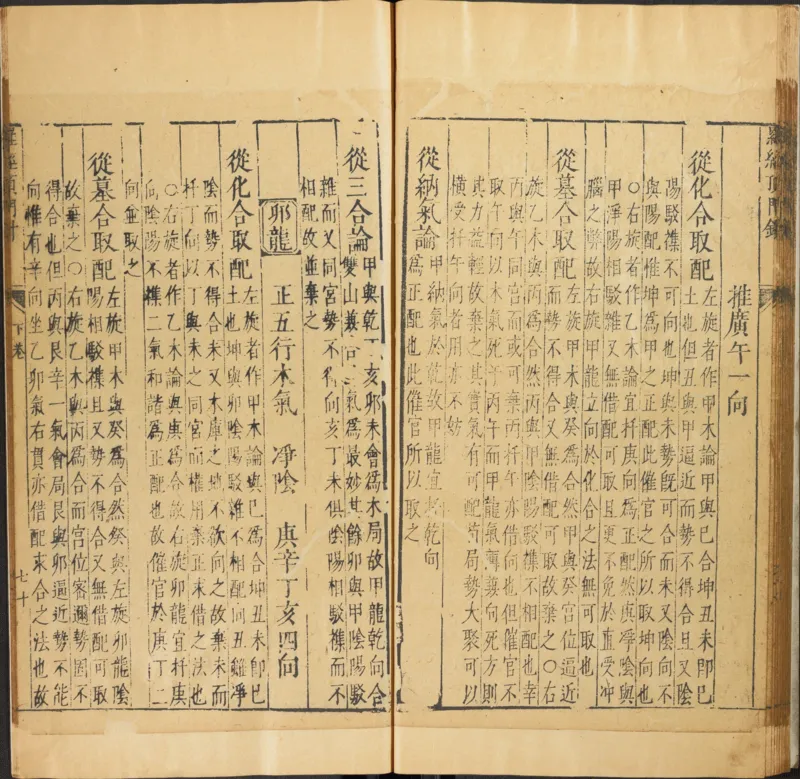 推廣午一向
從化合取配左旋者作甲木論甲與己合坤丑未卽己
土也但丑與甲逼近而勢不得合且又陰
陽駁襍不可向也坤與未勢旣可合而未又陰向不
與陽配惟坤爲甲之正配此催官之所以取坤向也
○右旋者作乙木論宜扦庚向爲正配然庚淨陰與
甲淨陽相駁雜又無借配可取且更不免於直受冲
腦之弊故右旋甲龍立向於化合之法無可取也
從墓合取配左旋甲木與癸爲合然甲與癸宮位逼近
而勢不得合又無借配可取故棄之○右
旋乙木與丙爲合然丙與甲陰陽駁襍不相配也幸
丙與午同宮而或可棄丙扦午亦借向也但催官不
取午向以木氣死于丙午而甲龍氣薄葬向死方則
其力益輕故棄之其實氣有可配符局勢大聚可以
橫受扦午向者用亦不妨
從納氣論甲納氣於乾故甲龍宜扦乾向
爲正配也此催官所以取之
從三合論甲與乾丁亥卯未會爲木局故甲龍乾向合
雙山兼合三氣爲最妙其餘卯與甲陰陽駁
雜而又同宮勢不得向亥丁未俱陰陽相駁襍而不
相配故並棄之
卯龍 正五行木氣 淨陰 庚辛丁亥四向
從化合取配左旋者作甲木論與己爲合坤丑未卽己
土也坤與卯陰陽駁雜不相配向丑雖淨
陰而勢不得合未又木庫之地不欲向之故棄未而
扦丁向以丁與未之同宮而權用棄正未借之法也
○右旋者作乙木論與庚爲合故右旋卯龍宜扦庚
向陰陽不襍二氣和諧爲正配也故催官於庚丁二
向並取之
從墓合取配左旋甲木與癸爲合然癸與左旋卯龍陰
陽相駁襍且又勢不得合又無借配可取
故棄之○右旋乙木與丙爲合而宮位密邇勢固不
得合也但丙與艮辛一氣會局艮與卯逼近勢不能
向惟有辛向坐乙卯氣右貫亦借配來合之法也故
下卷
七十